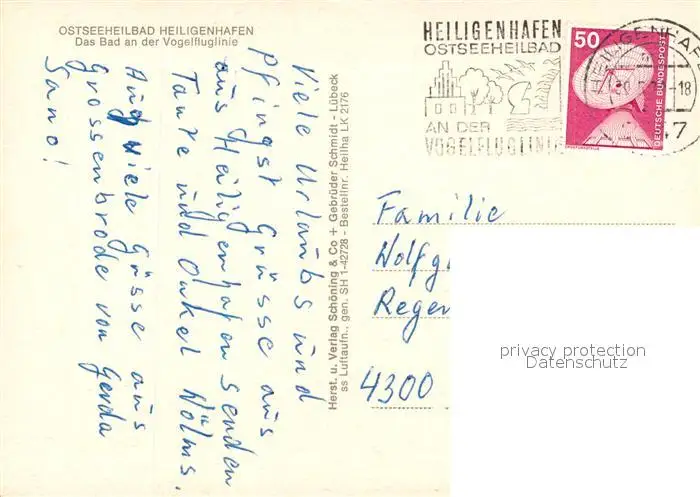 OSTSEEHEILBAD HEILIGENHAFEN
Das Bad an der Vogelfluglinie
Viele Urlaubs und
Pfingst Grüsse aus
aus Heiligenhafen senden
Tante und Onkel Wölms.
Auch viele Grüsse aus
Grossenbrode von Gerda
Sano!
Herst. u. Verlag Schöning & Co + Gebrüder Schmidt - Lübeck
ss Luftaufn., gen. SH 1-42728 - Bestellnr. Heilha LK 2176
HEILIGENHAFEN
OSTSEEHEILBAD
AN DER
VOGELFLUGLINIE
50
DEUTSCHE BUNDESPOST
-18
Familie
Wolfg
Regen
4300
privacy protection
Datenschutz